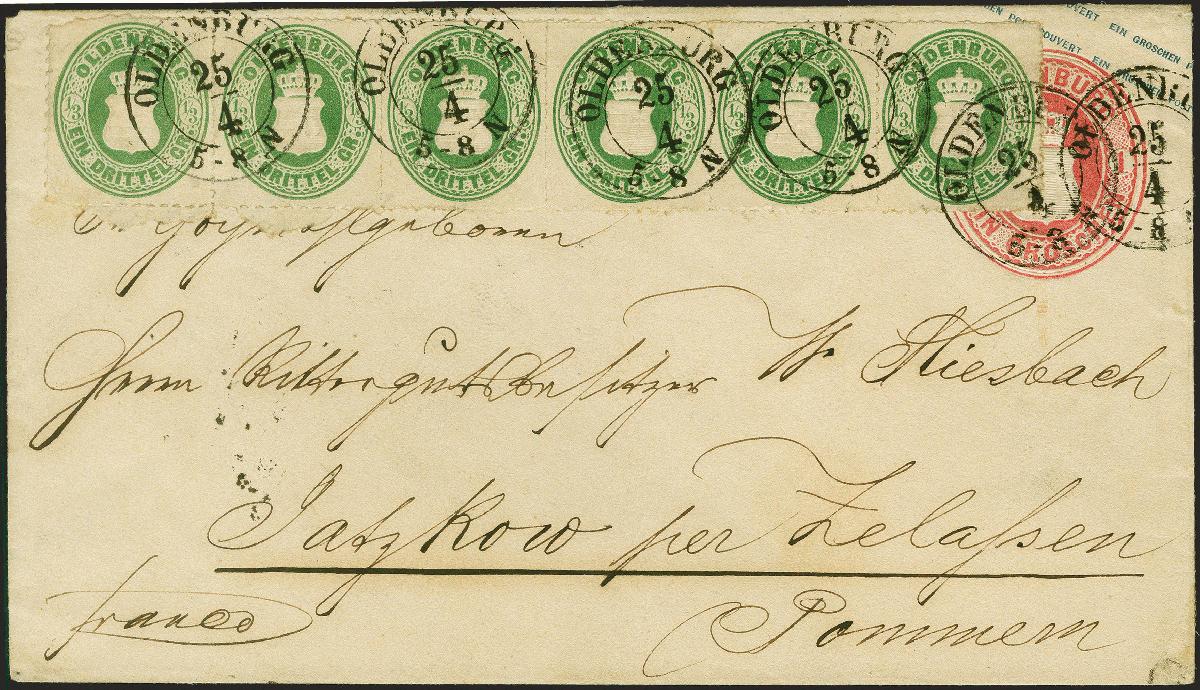 OLDENBURG OLDENBURG OLDENBURG OLDENBURG OLDENBURG OLDENBURG
1/3 EIN DRITTEL GR. 1/3 EIN DRITTEL GR. 1/3 EIN DRITTEL GR. 1/3 EIN DRITTEL GR. 1/3 EIN DRITTEL GR. 1/3 EIN DRITTEL GR.
OLDENBURG 25/4 5-8
OLDENBURG 25/4 5-8 N
OLDENBURG 25/4 5-8 N
OLDENBURG 25/4 5-8 N
OLDENBURG 25/4 5-8
OLDENBURG 25/4 5-8
COUVERT EIN GROSCHEN
COUVERT EIN
EIN GROSCHEN
Herrn Rittergutsbesitzer W. Fliesbach
Jatzkow per Zelaſsen
Pommern
franco